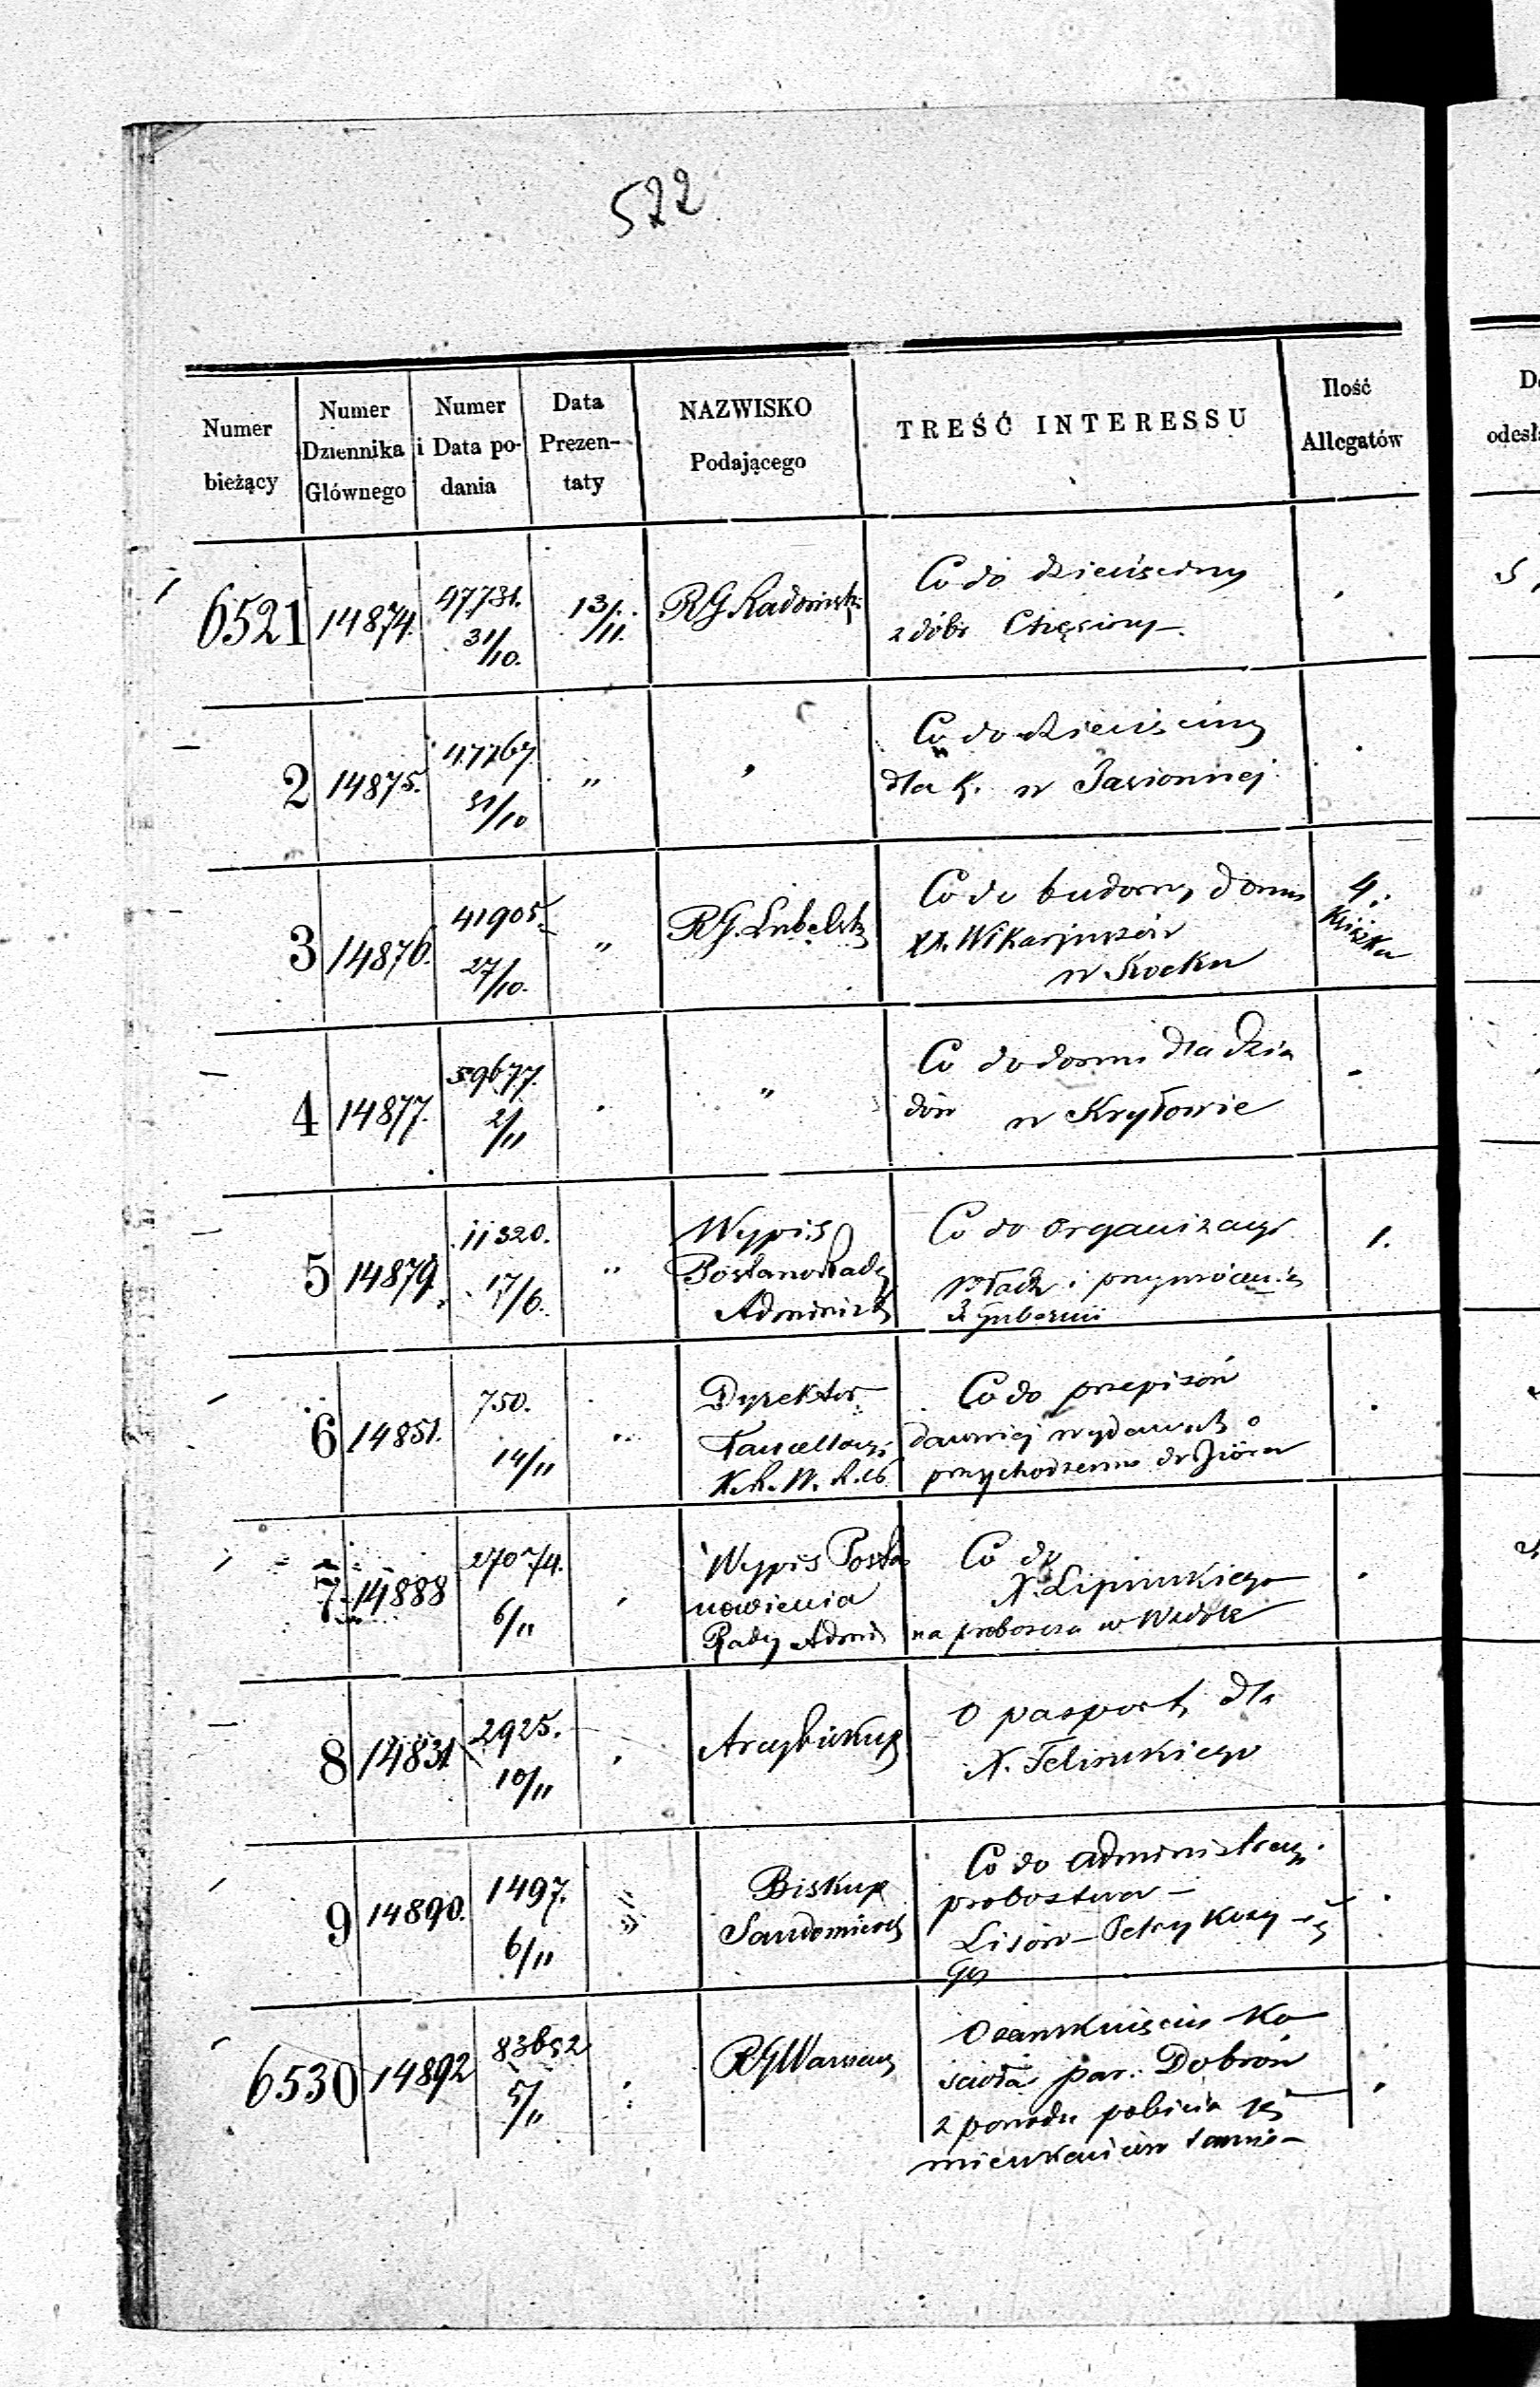 522
Numer bieżący
Numer Dziennika Głównego
Numer i Data podania
Data Prezentaty
NAZWISKO Podającego
TREŚĆ INTERESSU
Ilość Allegatów
6521 14874. 47731. 31/10. 13/11. RG Radomsk.
Co do dziesięciny
z dóbr Chęciny
2 14875. 47767 31/10 „ „
Co do dziesięciny
dla K. w Jasionnej
3 14876. 41905. 27/10. „ RG. Lubelsk
Co do budowy domu
XX. Wikarjuszów
w Kocku
4.
4 14877. 59677. 2/11 „
Co do domu dla dzia
dów w Kryłowie
5 14879. 11320. 17/6. „
Wypis
Postanow Rady
Administ
Co do organizacyi
władz i przywrócenia
Guberni
1.
6 14851. 750. 14/11 „
Dyrektor
Kancellaryi
K. R. W.
Co do przepisów
dawniej wydanych o
przychodzeniu do Biura
7 14888 27074. 6/11
Wypis Posta
nowienia
Rady Admi
Co do
X. Lipinskiego
na proboszcza w
8 14831 2925. 10/11
Arcybiskup
O pasport dla
X. Felinskiego
9 14890. 1497. 6/11 „
Biskup
Sandomiersk
Co do administracyi
probostwa
Lisów – Petrykozy
6530 14892 83652 5/11
RG Warszaw
O zamknięciu Ko
ścioła par. Dobroń
z powodu pobicia się
mieszkańców